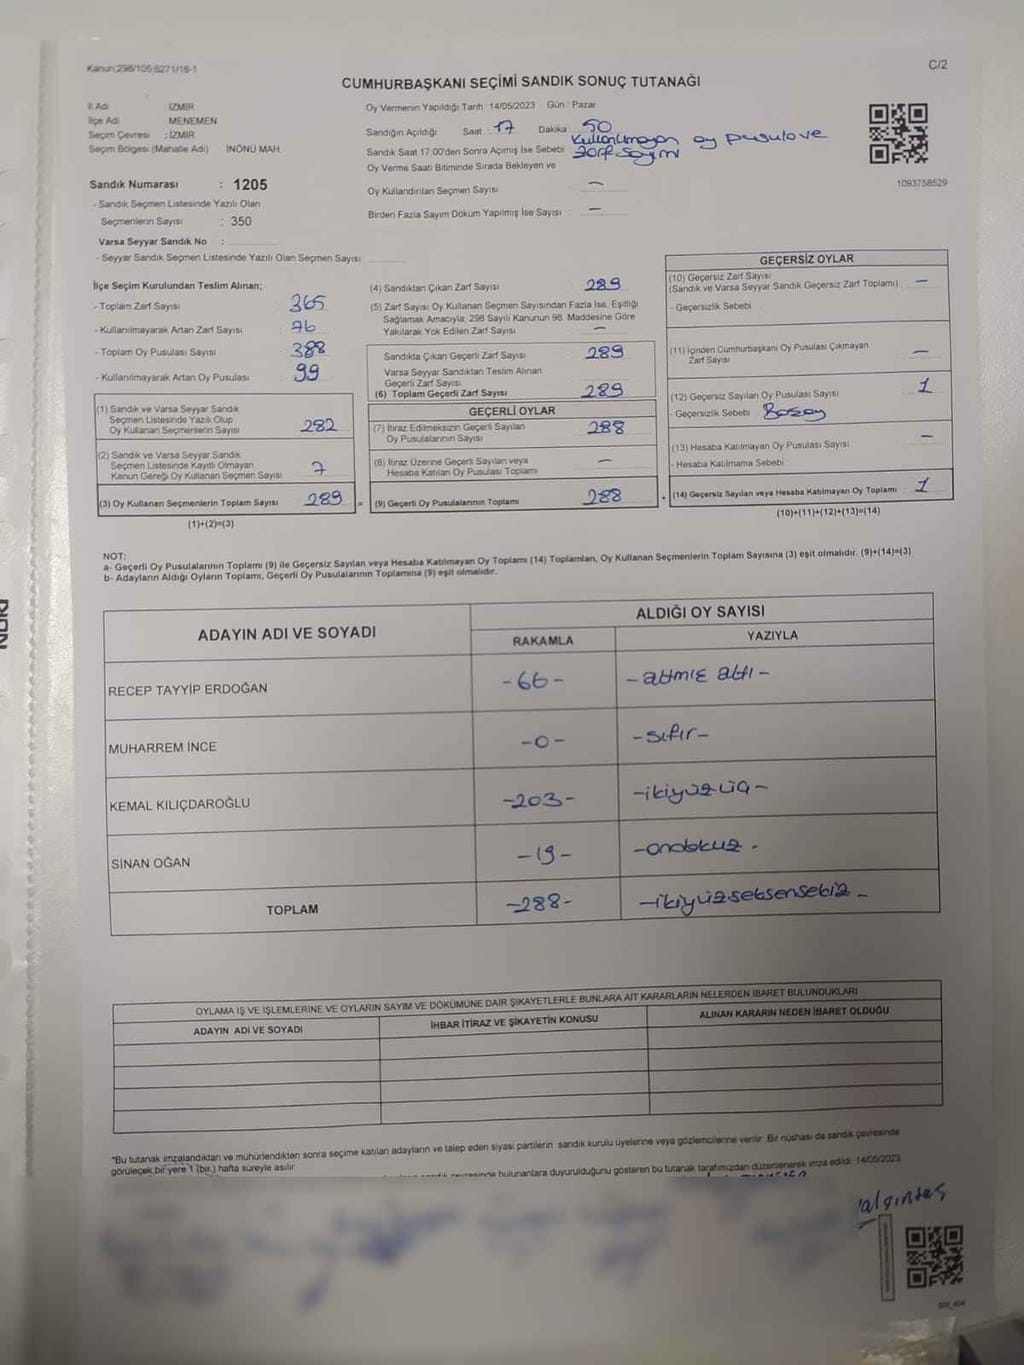 Kanun;298/105;6271/18-1
C/2
CUMHURBAŞKANI SEÇİMİ SANDIK SONUÇ TUTANAĞI
İl Adı İZMİR
İlçe Adı MENEMEN
Seçim Çevresi : İZMİR
Seçim Bölgesi (Mahalle Adı) İNÖNÜ MAH.
Oy Vermenin Yapıldığı Tarih 14/05/2023 Gün : Pazar
Sandığın Açıldığı Saat 17 Dakika 50
Sandık Saat 17:00'den Sonra Açılmış İse Sebebi Kullanılmayan oy pusula ve
zarf sayımı
Oy Verme Saati Bitiminde Sırada Bekleyen ve
Oy Kullandırılan Seçmen Sayısı –
Birden Fazla Sayım Döküm Yapılmış İse Sayısı : –
1093758529
Sandık Numarası : 1205
- Sandık Seçmen Listesinde Yazılı Olan
Seçmenlerin Sayısı : 350
Varsa Seyyar Sandık No :
- Seyyar Sandık Seçmen Listesinde Yazılı Olan Seçmen Sayısı
İlçe Seçim Kurulundan Teslim Alınan;
- Toplam Zarf Sayısı 365
- Kullanılmayarak Artan Zarf Sayısı : 76
- Toplam Oy Pusulası Sayısı 388
- Kullanılmayarak Artan Oy Pusulası : 99
(1) Sandık ve Varsa Seyyar Sandık
Seçmen Listesinde Yazılı Olup
Oy Kullanan Seçmenlerin Sayısı 282
(2) Sandık ve Varsa Seyyar Sandık
Seçmen Listesinde Kayıtlı Olmayan
Kanun Gereği Oy Kullanan Seçmen Sayısı 7
(3) Oy Kullanan Seçmenlerin Toplam Sayısı 289 =
(1)+(2)=(3)
(4) Sandıktan Çıkan Zarf Sayısı 289
(5) Zarf Sayısı Oy Kullanan Seçmen Sayısından Fazla İse, Eşitliği
Sağlamak Amacıyla; 298 Sayılı Kanunun 98. Maddesine Göre
Yakılarak Yok Edilen Zarf Sayısı –
Sandıkta Çıkan Geçerli Zarf Sayısı 289
Varsa Seyyar Sandıktan Teslim Alınan
Geçerli Zarf Sayısı
(6) Toplam Geçerli Zarf Sayısı 289
GEÇERLİ OYLAR
(7) İtiraz Edilmeksizin Geçerli Sayılan
Oy Pusulalarının Sayısı 288
(8) İtiraz Üzerine Geçerli Sayılan veya
Hesaba Katılan Oy Pusulası Toplamı –
(9) Geçerli Oy Pusulalarının Toplamı 288 +
GEÇERSİZ OYLAR
(10) Geçersiz Zarf Sayısı
(Sandık ve Varsa Seyyar Sandık Geçersiz Zarf Toplamı) –
- Geçersizlik Sebebi
(11) İçinden Cumhurbaşkanı Oy Pusulası Çıkmayan
Zarf Sayısı –
(12) Geçersiz Sayılan Oy Pusulası Sayısı 1
- Geçersizlik Sebebi
(13) Hesaba Katılmayan Oy Pusulası Sayısı –
- Hesaba Katılmama Sebebi
(14) Geçersiz Sayılan veya Hesaba Katılmayan Oy Toplamı 1
(10)+(11)+(12)+(13)=(14)
NOT:
a- Geçerli Oy Pusulalarının Toplamı (9) ile Geçersiz Sayılan veya Hesaba Katılmayan Oy Toplamı (14) Toplamları, Oy Kullanan Seçmenlerin Toplam Sayısına (3) eşit olmalıdır. (9)+(14)=(3)
b- Adayların Aldığı Oyların Toplamı, Geçerli Oy Pusulalarının Toplamına (9) eşit olmalıdır.
ADAYIN ADI VE SOYADI
ALDIĞI OY SAYISI
RAKAMLA YAZIYLA
RECEP TAYYİP ERDOĞAN -66- -altmış altı-
MUHARREM İNCE -0- -sıfır-
KEMAL KILIÇDAROĞLU -203- -ikiyüz üç-
SİNAN OĞAN -19- -ondokuz-
TOPLAM -288- -ikiyüzseksensekiz-
OYLAMA İŞ VE İŞLEMLERİNE VE OYLARIN SAYIM VE DÖKÜMÜNE DAİR ŞİKAYETLERLE BUNLARA AİT KARARLARIN NELERDEN İBARET BULUNDUKLARI
ADAYIN ADI VE SOYADI İHBAR İTİRAZ VE ŞİKAYETİN KONUSU ALINAN KARARIN NEDEN İBARET OLDUĞU
*Bu tutanak imzalandıktan ve mühürlendikten sonra seçime katılan adayların ve talep eden siyasi partilerin, sandık kurulu üyelerine veya gözlemcilerine verilir. Bir nüshası da sandık çevresinde
görülecek bir yere 1 (bir) hafta süreyle asılır.
bulunanlara duyurulduğunu gösteren bu tutanak tarafımızdan düzenlenerek imza edildi. 14/05/2023